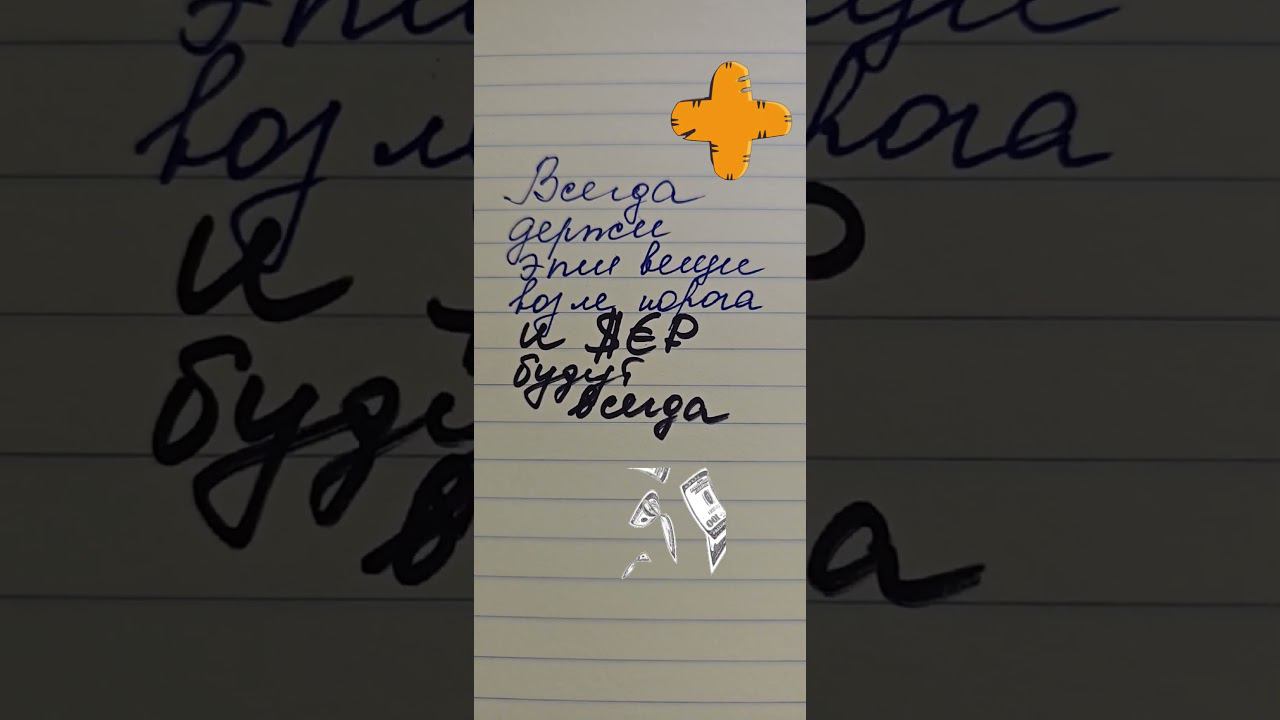 Всегда
держи
эти вещи
возле порога
и $€₽
будут
всегда